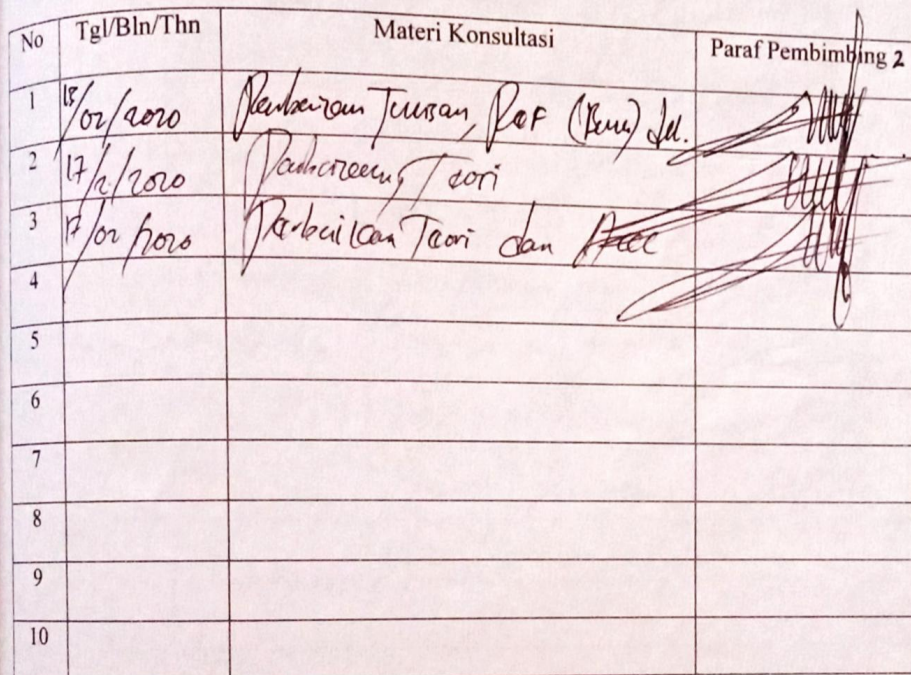 No Tgl/Bln/Thn Materi Konsultasi Paraf Pembimbing 2
1 18/02/2020 Perbaikan Tulisan, Ref
2 17/2/2020 Teori
3 17/02/2020 Perbaikan Teori dan Acc
4
5
6
7
8
9
10